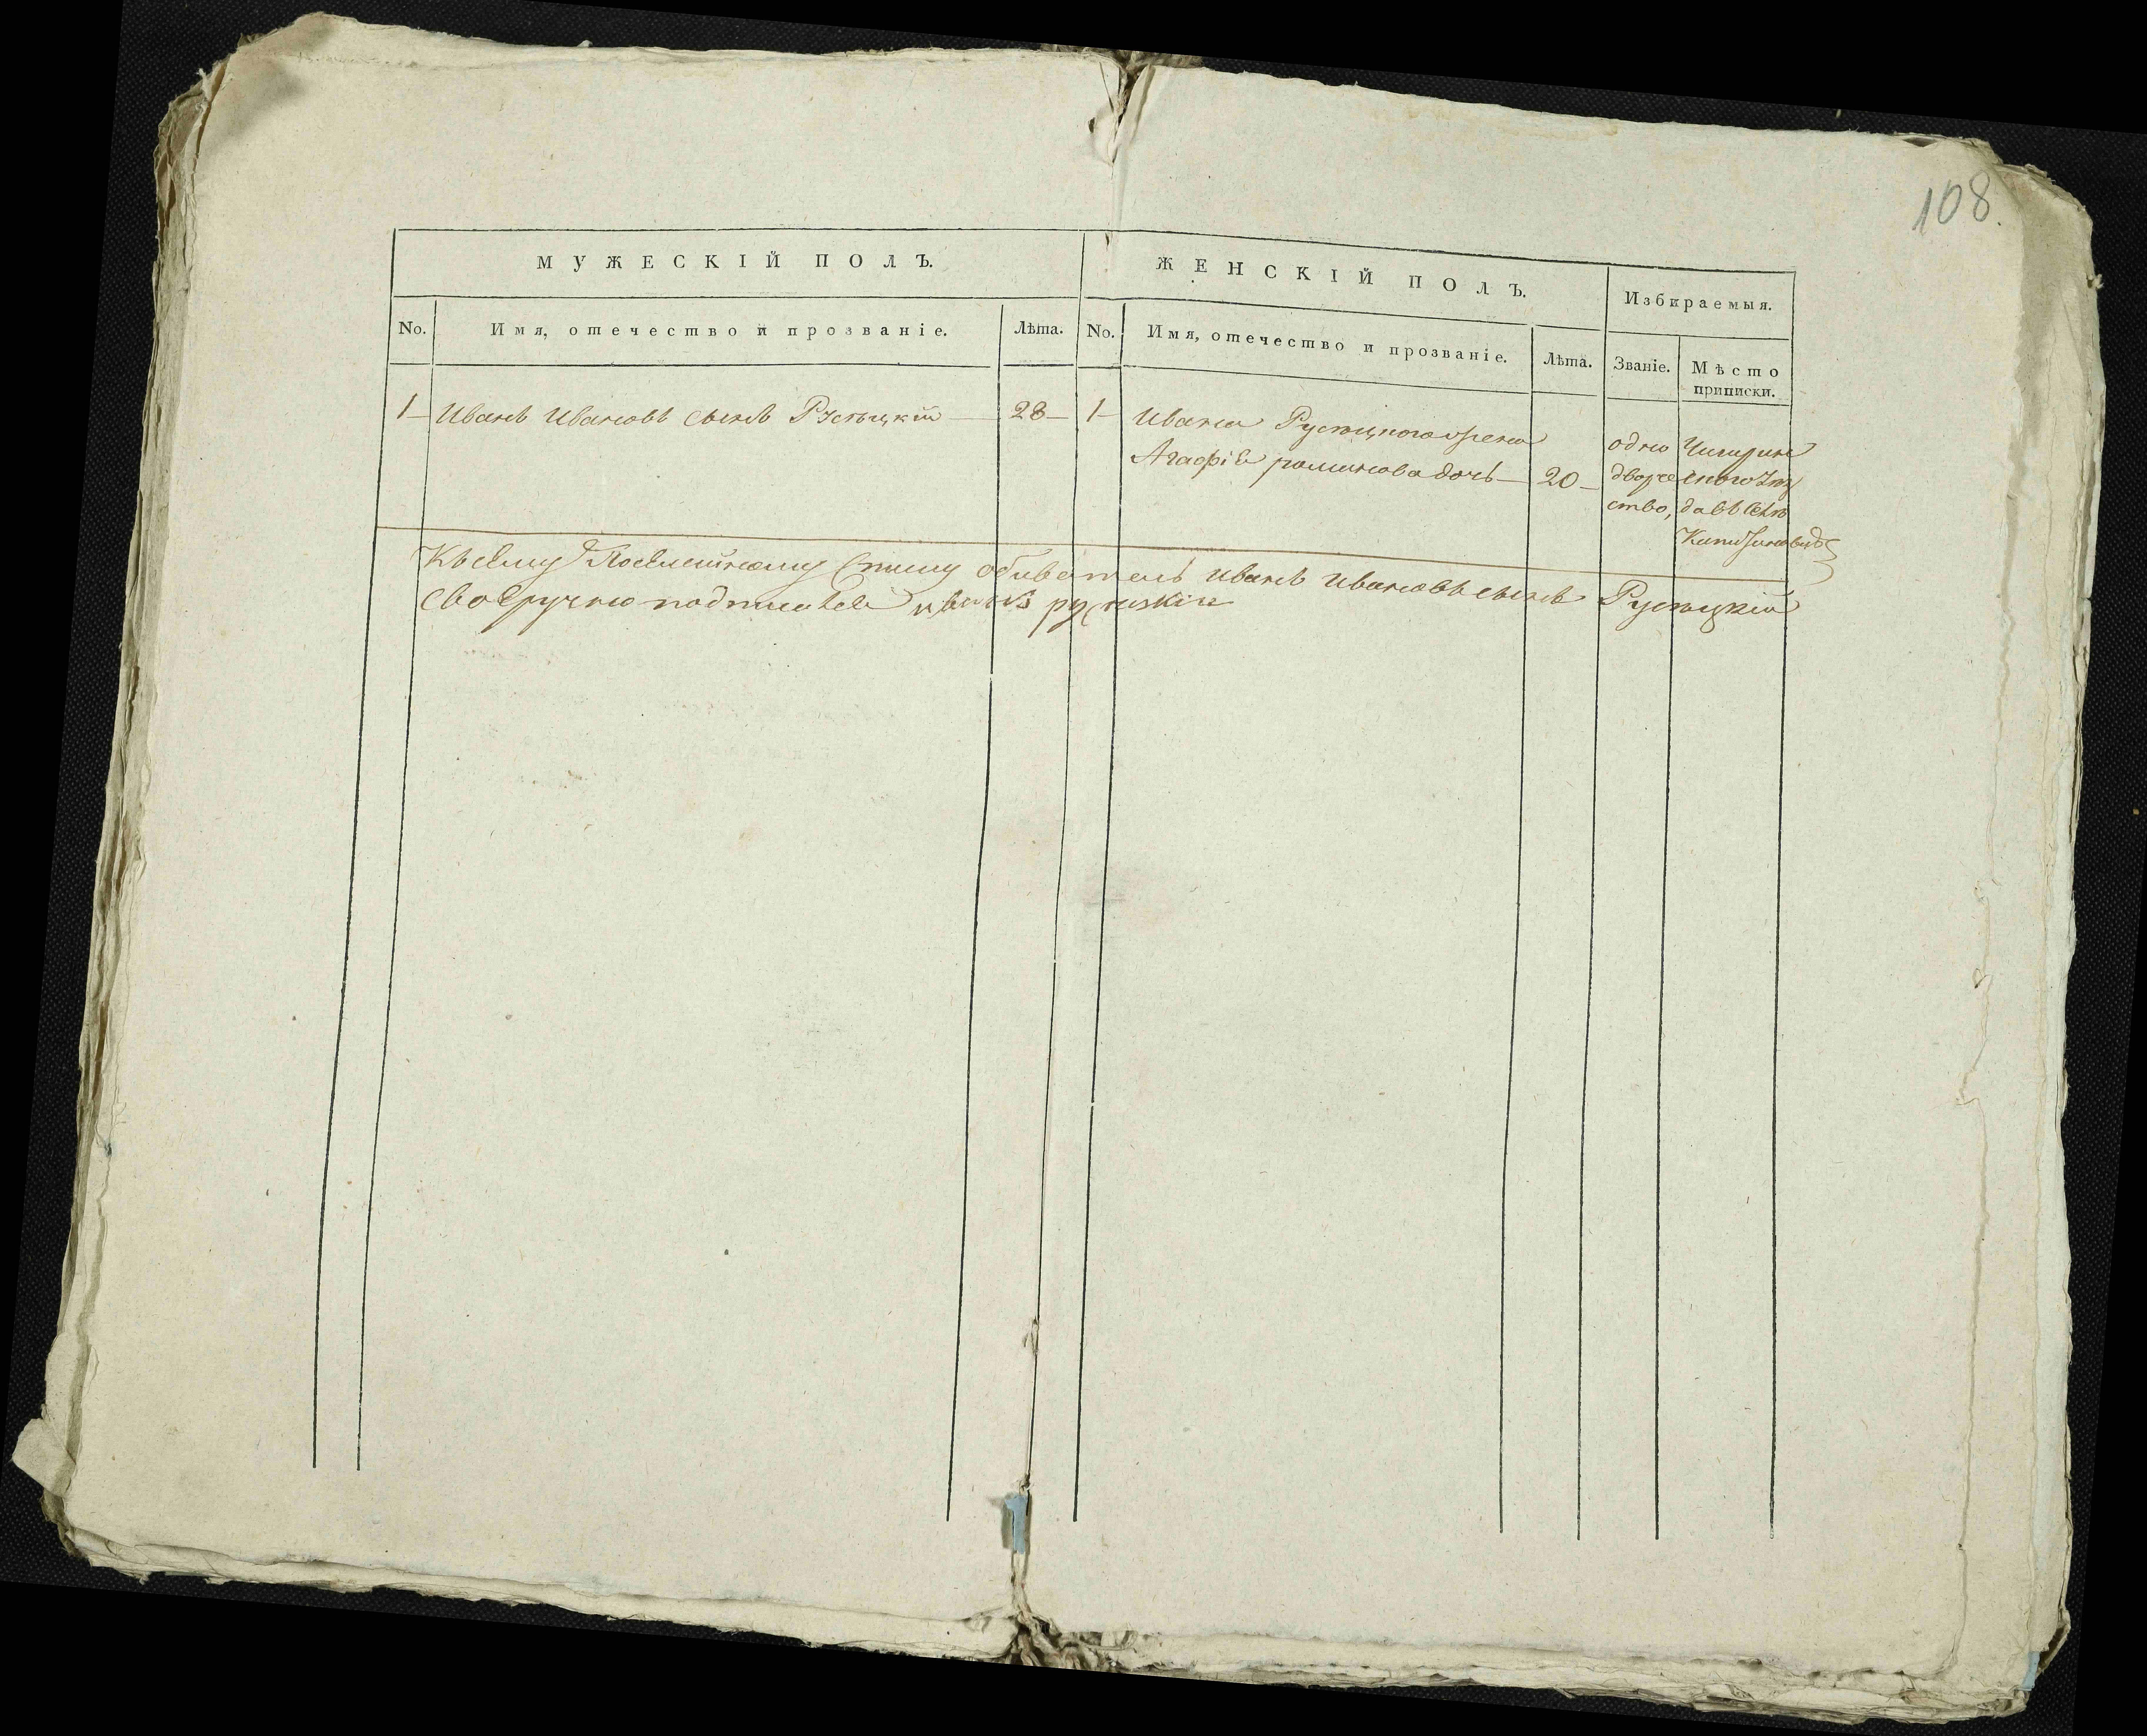 108.
МУЖЕСКІЙ ПОЛЪ.
ЖЕНСКІЙ ПОЛЪ.
Избираемыя.
No.
Имя, отечество и прозваніе.
Лѣта.
No.
Имя, отечество и прозваніе.
Лѣта.
Званіе.
Мѣсто
приписки.
1 Иванъ Ивановъ сынъ Рустѣцкій 28
1 Ивана Рустѣцкого жена
Агафія романова дочь 20
одно
дворче
ство,
Чигирин
ского уѣз
да въ селѣ
Къ сему Посемейному Списку обиватель Иванъ Ивановъ сынъ Рустѣцкій
своеручно подписался